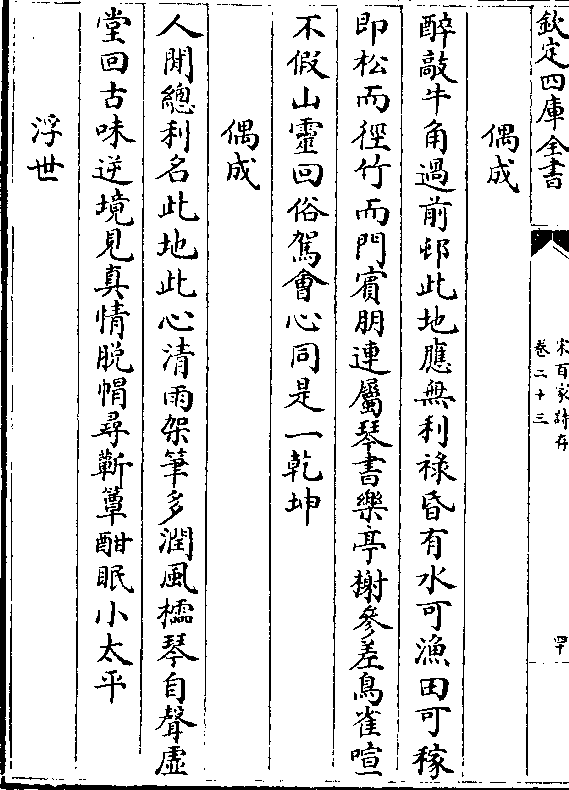 欽定四庫全書
宋百家詩存
卷二十三
偶成
醉敲牛角過前邨此地應無利祿昏有水可漁田可稼
即松而徑竹而門賓朋連屬琴書樂亭榭參差鳥雀喧
不假山靈回俗駕會心同是一乾坤
偶成
人閒總利名此地此心清雨架筆多潤風檽琴自聲虛
堂回古味逆境見真情脱幘尋蘄簟酣眠小太平
浮世